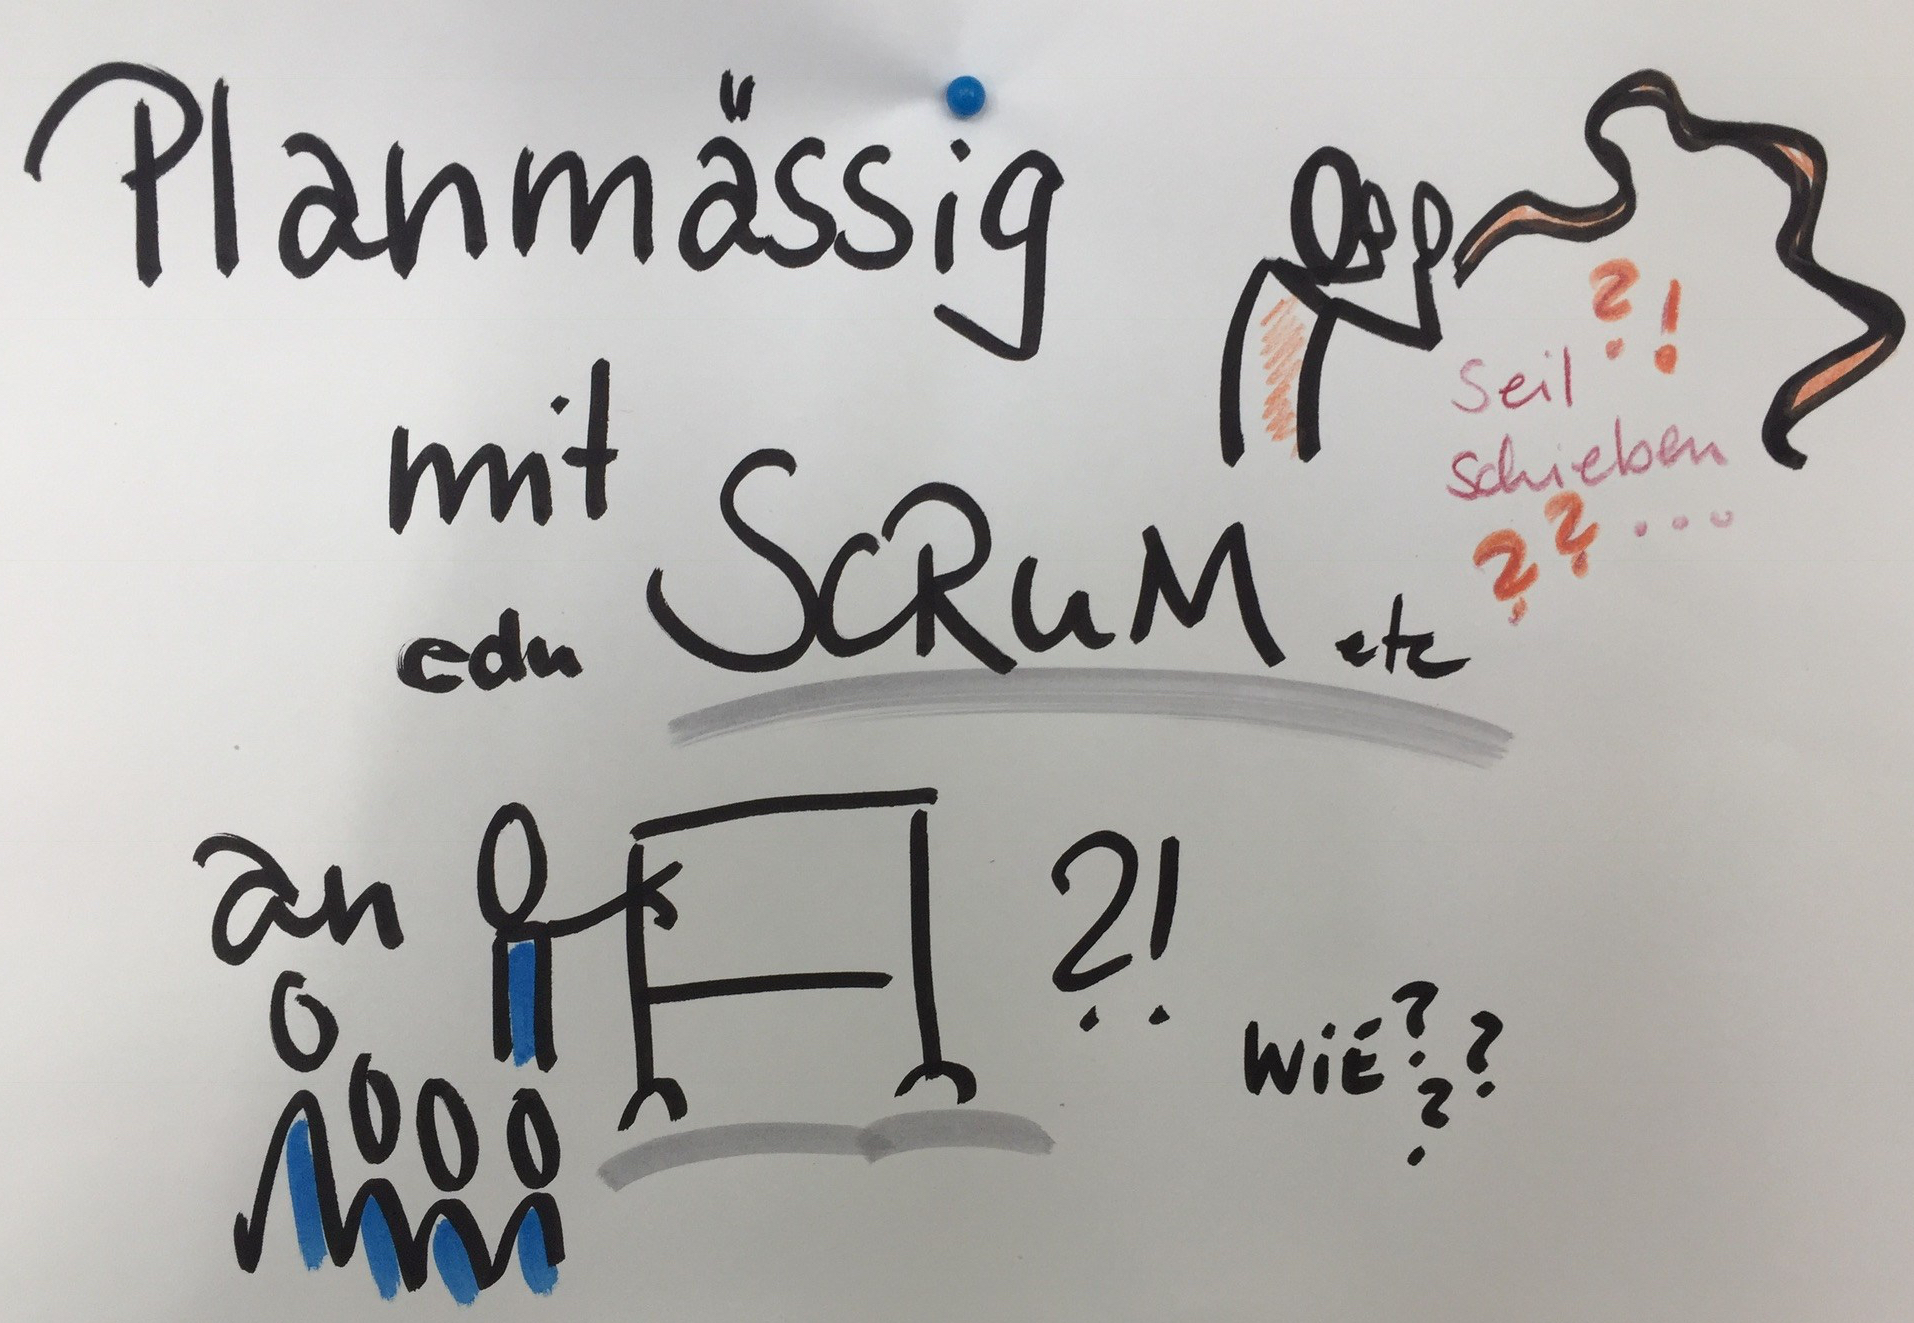 Planmässig
mit
edu SCRUM etc
?!
Seil
schieben
?? ...
an ?!
WIE???